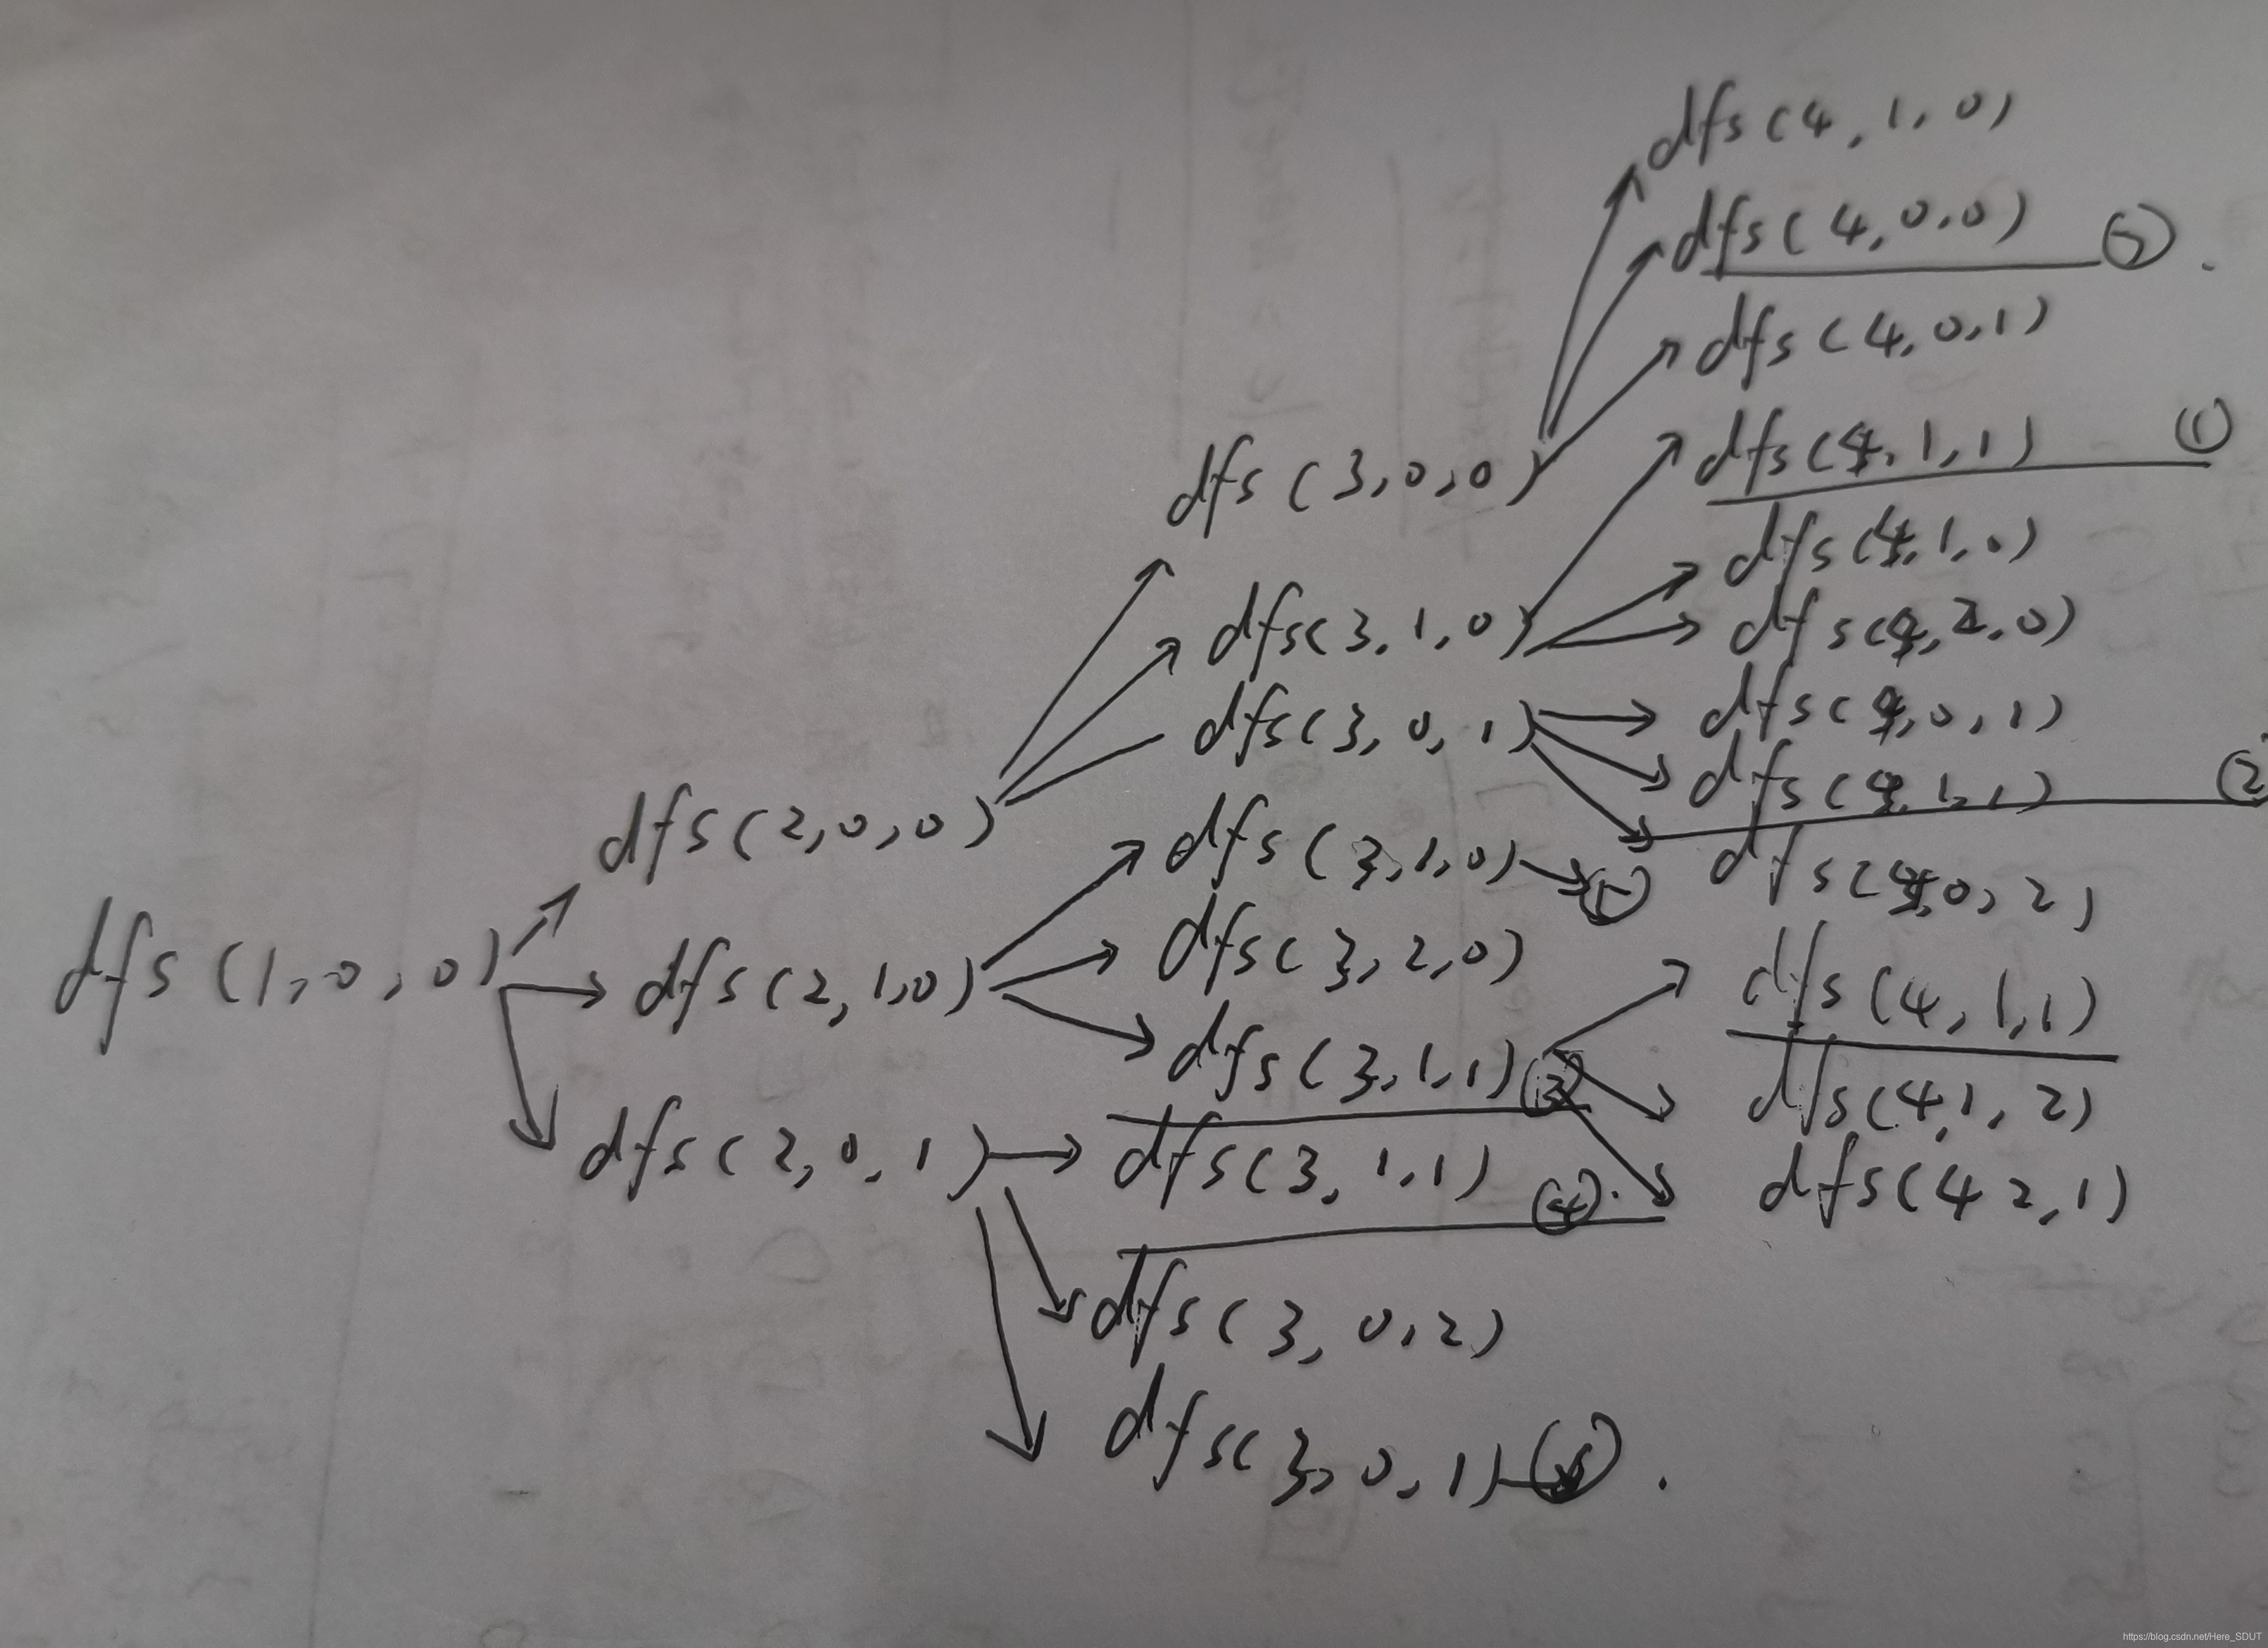 dfs(4,1,0)
dfs(4,0,0)
dfs(4,0,1)
dfs(4,1,1) ①
dfs(3,0,0)
dfs(4,1,0)
dfs(3,1,0)
dfs(4,2,0)
dfs(3,0,1)
dfs(4,0,1)
dfs(4,1,1) ②
dfs(2,0,0)
dfs(3,1,0)
dfs(4,0,2)
dfs(1,0,0)
dfs(2,1,0)
dfs(3,2,0)
dfs(4,1,1)
dfs(3,1,1) ③
dfs(4,1,2)
dfs(2,0,1)
dfs(3,1,1) ④
dfs(4 2,1)
dfs(3,0,2)
dfs(3,0,1)
https://blog.csdn.net/Here_SDUT